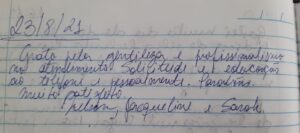 23/8/21
Grato pela gentileza e profissionalismo
no atendimento solicitude e educação
ao telefone e pessoalmente. Parabéns
muito satisfeito
Nelson, Jaqueline e Sarah